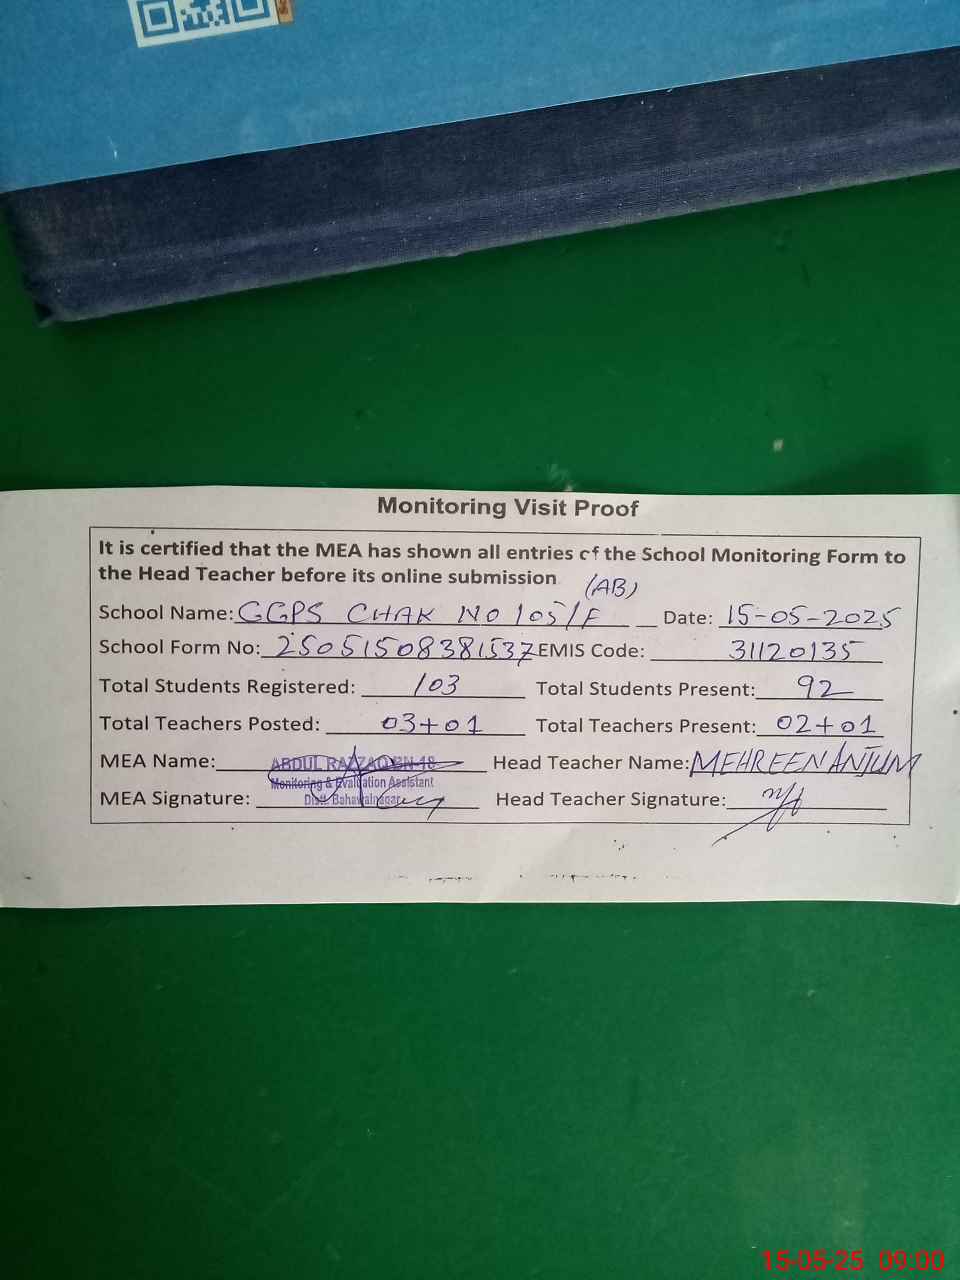 Monitoring Visit Proof
It is certified that the MEA has shown all entries of the School Monitoring Form to
the Head Teacher before its online submission
(AB)
School Name: GGPS CHAK NO 105/F Date: 15-05-2025
School Form No: 25051508381537 EMIS Code: 31120135
Total Students Registered: 103 Total Students Present: 92
Total Teachers Posted: 03+01 Total Teachers Present: 02+01
MEA Name: ABDUL RAZZAQ BN-18 Head Teacher Name: MEHREEN ANJUM
Monitoring & Evaluation Assistant
MEA Signature: Distt. Bahawalnagar Head Teacher Signature:
15-05-25 09:00